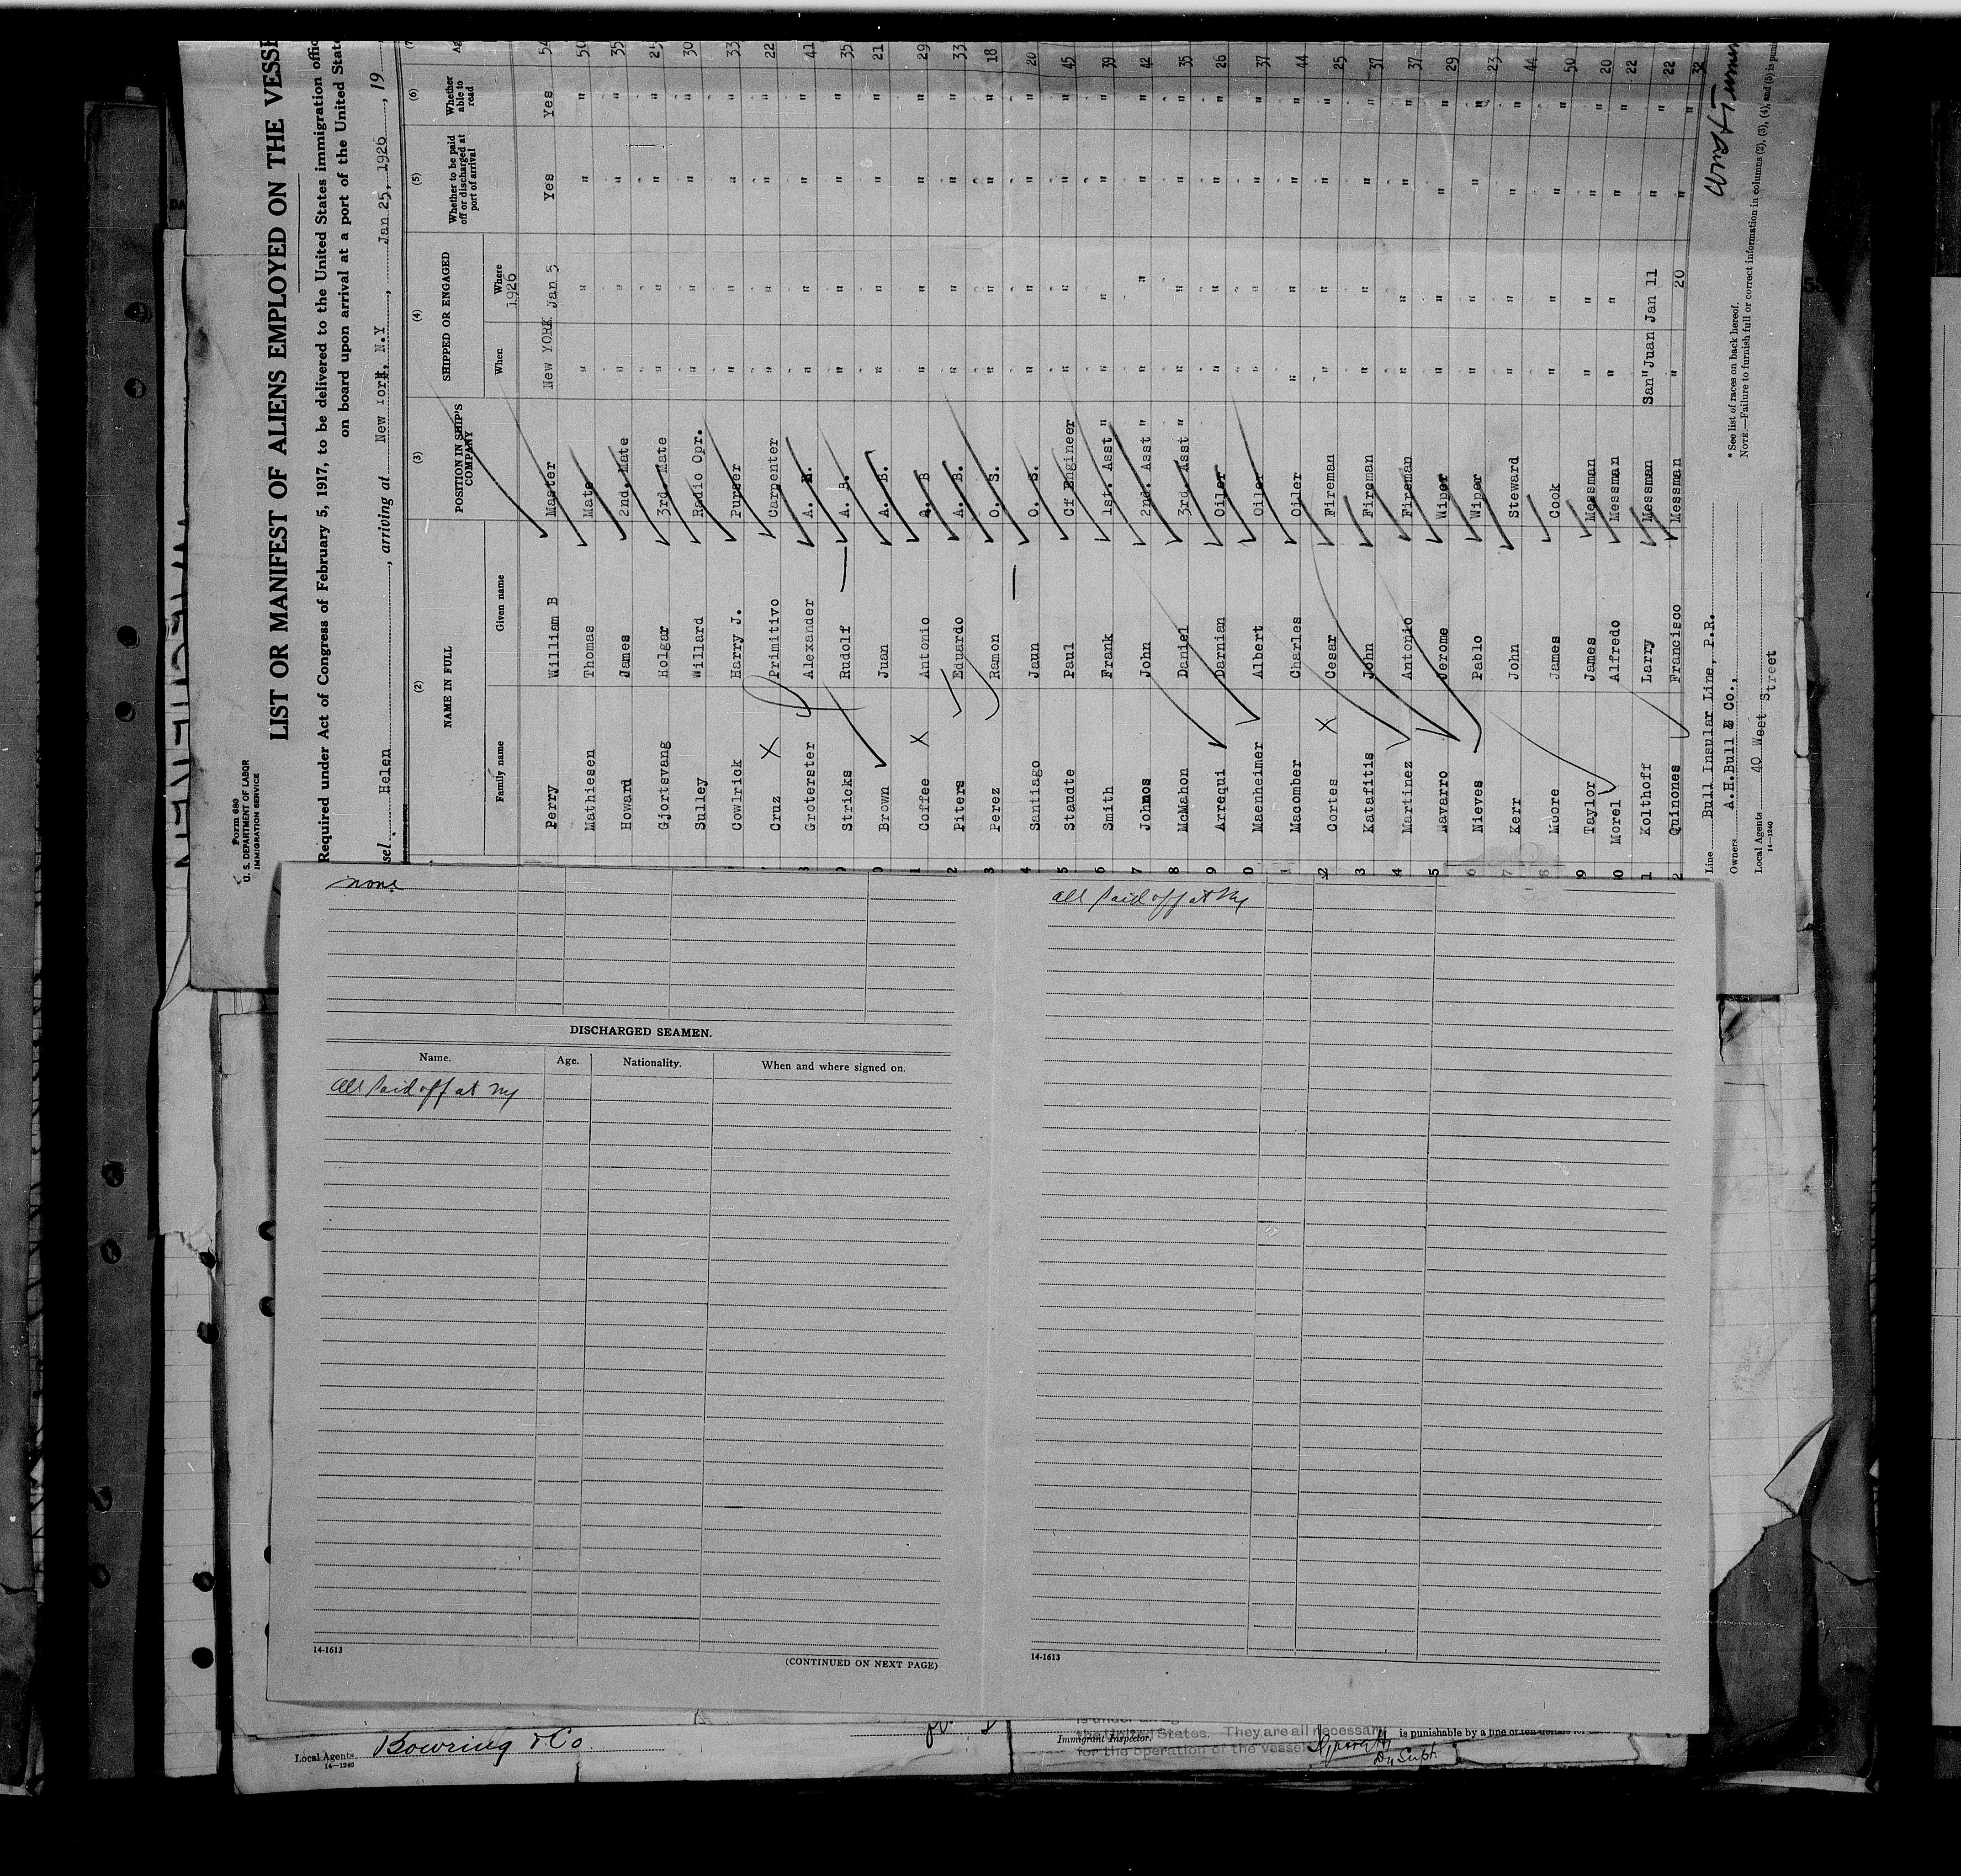 Form 680
U. S. DEPARTMENT OF LABOR
IMMIGRATION SERVICE
LIST OR MANIFEST OF ALIENS EMPLOYED ON THE VESSE
Required under Act of Congress of February 5, 1917, to be delivered to the United States immigration offic
on board upon arrival at a port of the United Stat
sel Helen, arriving at New York, N.Y, Jan 25, 1926, 19
(2) (3) (4) (5) (6)
NAME IN FULL POSITION IN SHIP'S COMPANY SHIPPED OR ENGAGED Whether to be paid off or discharged at port of arrival Whether able to read
Family name Given name When Where
1926
Perry William B Master New YORK Jan 5 Yes Yes 54
Mathiesen Thomas Mate " " " " 50
Howard James 2nd. Mate " " " " 35
Gjortsvang Holgar 3rd. Mate " " " " 25
Sulley Willard Radio Opr. " " " " 30
Cowlrick Harry J. Purser " " " " 33
Cruz Primitivo Carpenter " " " " 22
Groterster Alexander A. B. " " " " 41
Stricks Rudolf A. B. " " " " 35
Brown Juan A. B. " " " " 21
Coffee Antonio A. B " " " " 29
Piters Eduardo A. B. " " " " 33
Perez Ramon O. S. " " " " 18
Santiago Jaun O. S. " " " " 20
Staudte Paul Cf Engineer " " " " 45
Smith Frank 1st. Asst " " " " " 39
Johnos John 2nd. Asst " " " " " 42
McMahon Daniel 3rd. Asst " " " " " 35
Arrequi Darnian Oiler " " " " 26
Maenheimer Albert Oiler " " " " 37
Macomber Charles Oiler " " " " 44
Cortes Cesar Fireman " " " " 25
Katafitis John Fireman " " " " 37
Martinez Antonio Fireman " " " " 37
Navarro Jerome Wiper " " " " 29
Nieves Pablo Wiper " " " " 23
Kerr John Steward " " " " 44
Moore James Cook " " " " 50
Taylor James Messman " " " " 20
Morel Alfredo Messman " " " " 22
Kolthoff Larry Messman San Juan Jan 11 " " 22
Quinones Francisco Messman " 20 " " 32
Line Bull Insular Line, P.R.
Owners A.H.Bull & Co.,
Local Agents 40 West Street
14—1240
* See list of races on back hereof.
NOTE.—Failure to furnish full or correct information in columns (2), (3), (4), and (5) is puni
none
DISCHARGED SEAMEN.
Name. Age. Nationality. When and where signed on.
all Paid off at Ny
14-1613
(CONTINUED ON NEXT PAGE)
all Paid off at Ny
14-1613
Local Agents Bowring & Co.
14—1240
the United States. They are all necessary
for the operation of the vessel
Immigrant Inspector.
is punishable by a fine of ten dollars for